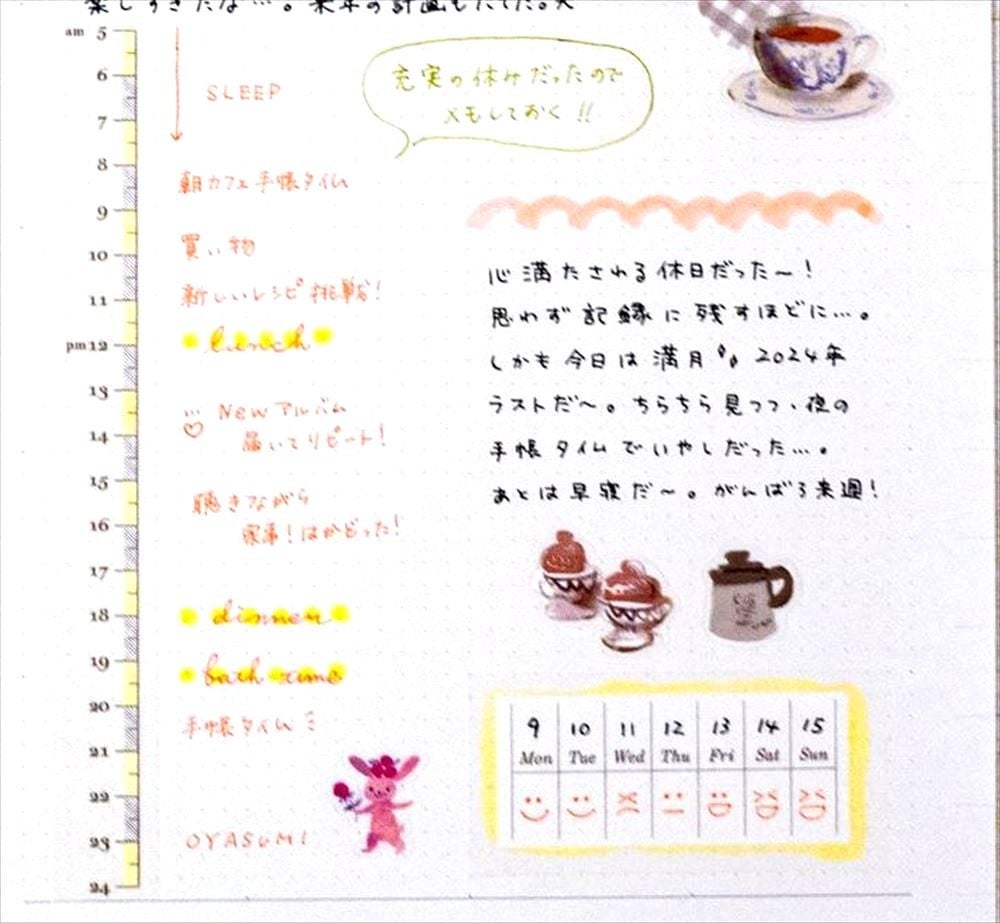 楽しすぎたな…。来年の計画もたてた。
am 5
6
7
8
9
10
11
pm12
13
14
15
16
17
18
19
20
21
22
23
24
SLEEP
充実の休みだったので
メモしておく!!
朝カフェ手帳タイム
買い物
新しいレシピ挑戦!
lunch
New アルバム
届いてリピート!
聴きながら
家事!はかどった!
dinner
bath time
手帳タイム
OYASUMI
心満たされる休日だった〜!
思わず記録に残すほどに…。
しかも今日は満月 2024年
ラストだ〜。ちらちら見つつ、夜の
手帳タイムでいやしだった…。
あとは早寝だ〜。がんばろ来週!
9 10 11 12 13 14 15
Mon Tue Wed Thu Fri Sat Sun